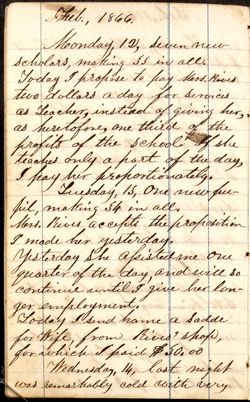 Feb., 1866.
Monday, 12, seven new
scholars, making 33 in all.
Today I propose to pay Mrs. Rives
two dollars a day for services
as teacher, instead of giving her,
as heretofore, one third of the
profits of the school. If she
teaches only a part of the day,
I pay her proportionately.
Tuesday, 13, One new pu-
pil, making 34 in all.
Mrs. Rives accepts the proposition
I made her yesterday.
Yesterday she assisted me one
quarter of the day, and will so
continue until I give her lon-
ger employment.
Today I send home a saddle
for Wife, from Rives' shop,
for which I paid $30.00
Wednesday, 14, last night
was remarkably cold with very